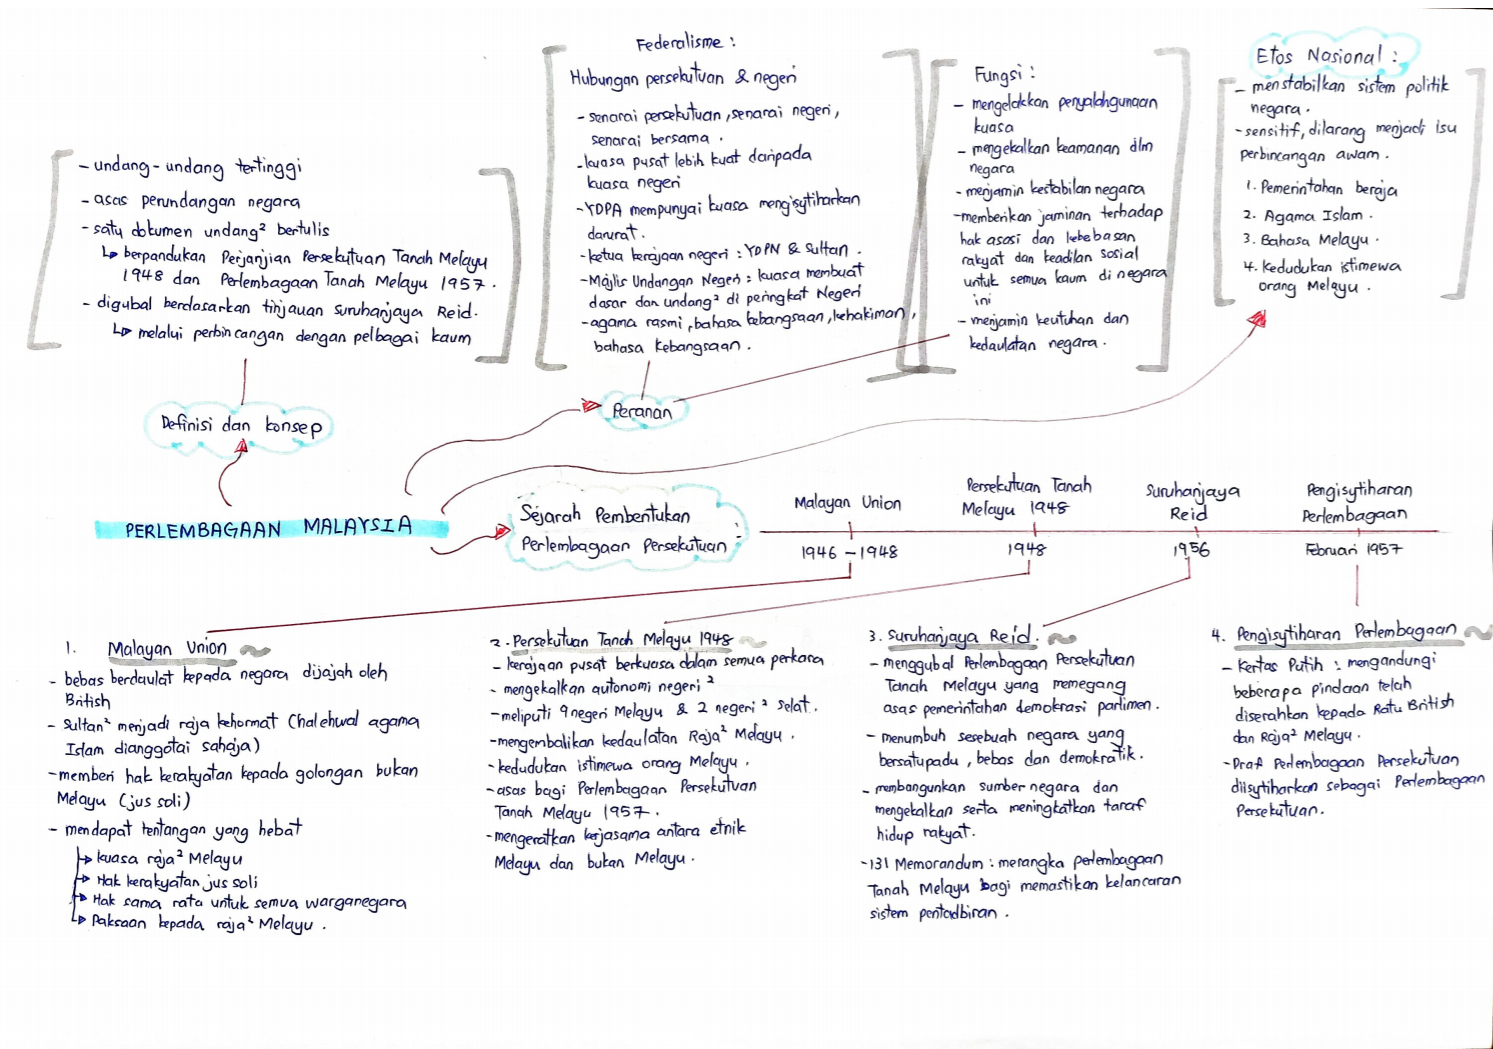 PERLEMBAGAAN MALAYSIA
Definisi dan konsep
- undang-undang tertinggi
- asas perundangan negara
- satu dokumen undang² bertulis
↳ berpandukan Perjanjian Persekutuan Tanah Melayu
1948 dan Perlembagaan Tanah Melayu 1957.
- digubal berdasarkan tinjauan suruhanjaya Reid.
↳ melalui perbincangan dengan pelbagai kaum
Peranan
Federalisme :
Hubungan persekutuan & negeri
- senarai persekutuan, senarai negeri,
senarai bersama.
- kuasa pusat lebih kuat daripada
kuasa negeri
- YDPA mempunyai kuasa mengisytiharkan
darurat.
- ketua kerajaan negeri : YDPN & Sultan.
- Majlis Undangan Negeri : kuasa membuat
dasar dan undang² di peringkat Negeri
- agama rasmi, bahasa kebangsaan, kehakiman,
bahasa kebangsaan.
Fungsi :
- mengelakkan penyalahgunaan
kuasa
- mengekalkan keamanan dlm
negara
- menjamin kestabilan negara
- memberikan jaminan terhadap
hak asasi dan kebebasan
rakyat dan keadilan sosial
untuk semua kaum di negara
ini
- menjamin keutuhan dan
kedaulatan negara.
Etos Nasional :
- menstabilkan sistem politik
negara.
- sensitif, dilarang menjadi isu
perbincangan awam.
1. Pemerintahan beraja
2. Agama Islam.
3. Bahasa Melayu.
4. Kedudukan istimewa
orang Melayu.
Sejarah Pembentukan
Perlembagaan Persekutuan :
Malayan Union
1946 - 1948
Persekutuan Tanah
Melayu 1948
1948
Suruhanjaya
Reid
1956
Pengisytiharan
Perlembagaan
Februari 1957
1. Malayan Union
- bebas berdaulat kepada negara dijajah oleh
British
- Sultan² menjadi raja kehormat (halehwal agama
Islam dianggotai sahaja)
- memberi hak kerakyatan kepada golongan bukan
Melayu (jus soli)
- mendapat tentangan yang hebat
↳ kuasa raja² Melayu
↳ Hak kerakyatan jus soli
↳ Hak sama rata untuk semua warganegara
↳ Paksaan kepada raja² Melayu.
2. Persekutuan Tanah Melayu 1948
- kerajaan pusat berkuasa dalam semua perkara
- mengekalkan autonomi negeri²
- meliputi 9 negeri Melayu & 2 negeri² selat.
- mengembalikan kedaulatan Raja² Melayu.
- kedudukan istimewa orang Melayu.
- asas bagi Perlembagaan Persekutuan
Tanah Melayu 1957.
- mengeratkan kerjasama antara etnik
Melayu dan bukan Melayu.
3. Suruhanjaya Reid.
- menggubal Perlembagaan Persekutuan
Tanah Melayu yang memegang
asas pemerintahan demokrasi parlimen.
- menumbuh sesebuah negara yang
bersatupadu, bebas dan demokratik.
- membangunkan sumber negara dan
mengekalkan serta meningkatkan taraf
hidup rakyat.
- 131 Memorandum : merangka perlembagaan
Tanah Melayu bagi memastikan kelancaran
sistem pentadbiran.
4. Pengisytiharan Perlembagaan
- Kertas Putih : mengandungi
beberapa pindaan telah
diserahkan kepada Ratu British
dan Raja² Melayu.
- Draf Perlembagaan Persekutuan
diisytiharkan sebagai Perlembagaan
Persekutuan.